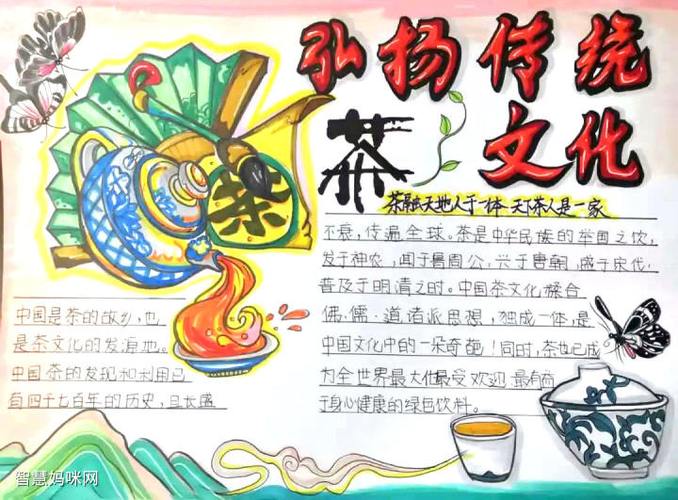 弘扬传统
茶文化
茶
茶融天地人于一体 天下茶人是一家
中国是茶的故乡,也
是茶文化的发源地。
中国茶的发现和利用已
有四千七百年的历史,且长盛
不衰,传遍全球。茶是中华民族的举国之饮,
发于神农,闻于鲁周公,兴于唐朝,盛于宋代,
普及于明清之时。中国茶文化糅合
佛·儒·道诸派思想,独成一体,是
中国文化中的一朵奇葩!同时,茶也已成
为全世界最大化最受欢迎 最有益
于身心健康的绿色饮料。
智慧妈咪网